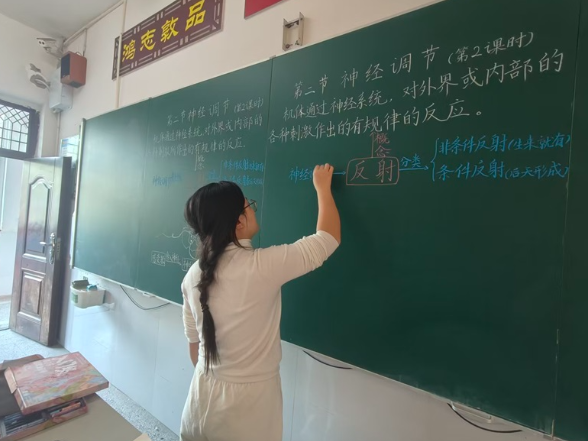 鸿志敦品
第二节 神经调节（第2课时）
机体通过神经系统，对外界或内部的
各种刺激作出的有规律的反应。
概念
神经
反射
分类
非条件反射（生来就有）
条件反射（后天形成）
第二节 神经调节（第2课时）
机体通过神经系统，对外界或内部的
各种刺激作出的有规律的反应。